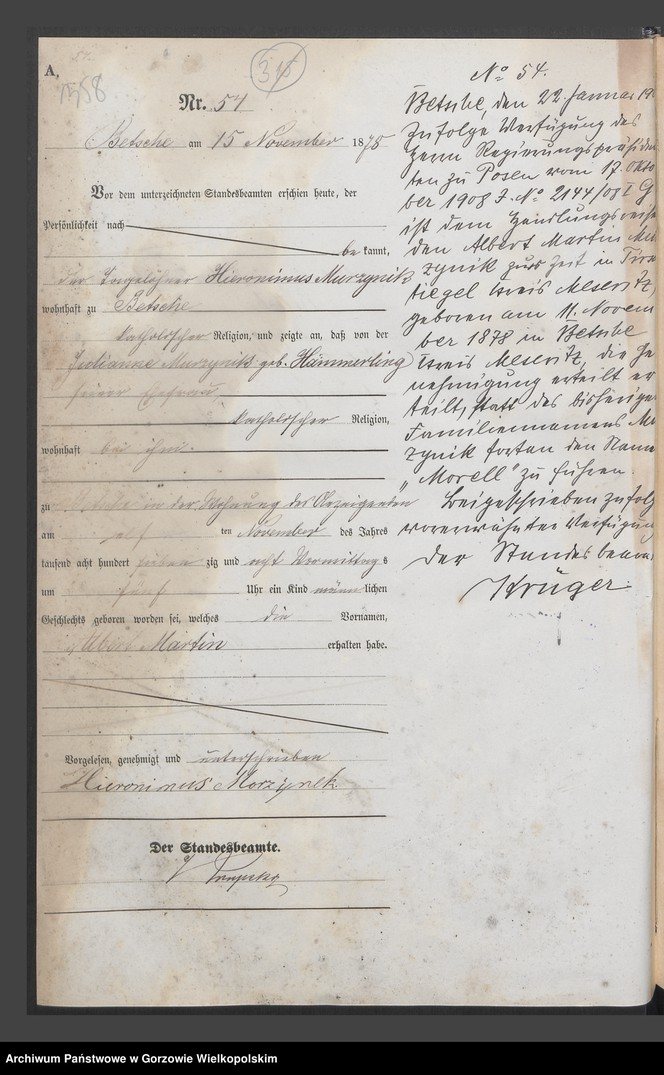 A.
1558
34
Nr. 54
Betsche am 15 November 1878
Vor dem unterzeichneten Standesbeamten erschien heute, der
Persönlichkeit nach
be kannt,
der Tagelöhner Hieronimus Murzynik
wohnhaft zu Betsche
katholischer Religion, und zeigte an, daß von der
Julianne Murzynik geb. Hämmerling
seiner Ehefrau
katholischer Religion,
wohnhaft bei ihm
zu Betsche in der Wohnung des Anzeigenden
am elf ten November des Jahres
tausend acht hundert sieben zig und acht Vormittag s
um fünf Uhr ein Kind männ lichen
Geschlechts geboren worden sei, welches die Vornamen,
Albert Martin erhalten habe.
Vorgelesen, genehmigt und unterschrieben
Hieronimus Morzynek
Der Standesbeamte.
No 54.
Betsche, den 22. Januar 19
Zufolge Verfügung des
Herrn Regierungspräsiden
ten zu Posen vom 17. Okto
ber 1908 J. No 2144/08 I G
ist dem Handlungsreisen
den Albert Martin Mur
zynik zur Zeit in Tirsch
tiegel Kreis Meseritz,
geboren am 11. Novem
ber 1878 in Betsche
Kreis Meseritz, die Ge
nehmigung erteilt er
teilt, statt des bisherige
Familiennamens Mur
zynik fortan den Name
"Morell" zu führen.
Beigeschrieben zufolg
vorerwähnter Verfügung
Der Standesbeam
Krüger.
Archiwum Państwowe w Gorzowie Wielkopolskim